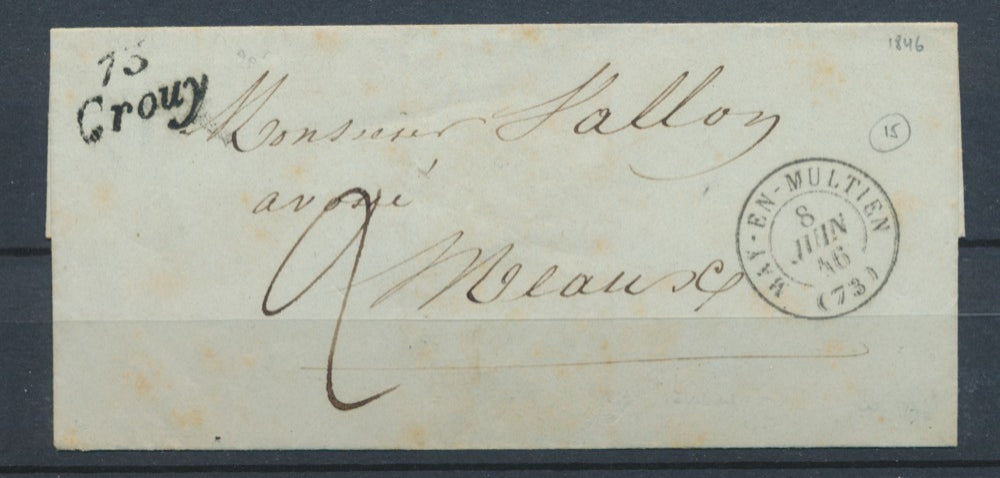 1846
73
Crouy
Monsieur Vallon
15
avoué
MAY-EN-MULTIEN
8
JUIN
46
(73)
2
Meaux